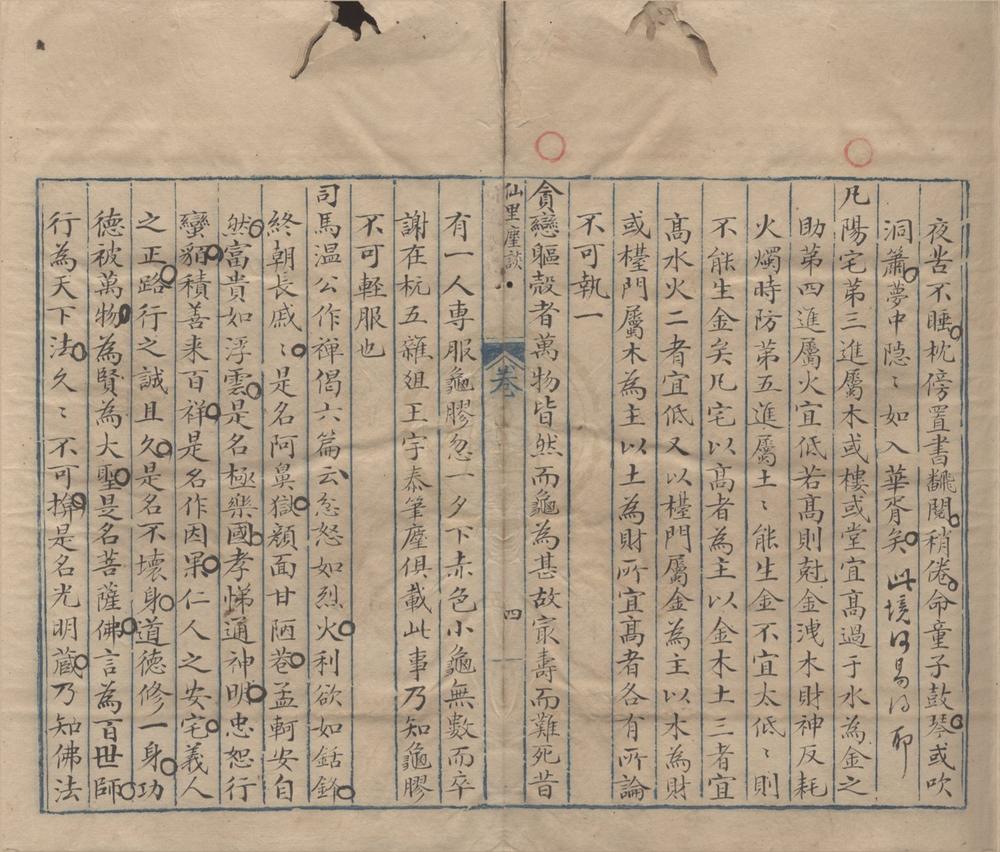 夜苦不睡枕傍置書翻閱稍倦命童子鼓琴或吹
洞簫夢中隐〻如入華胥矣此境何易得耶
凡陽宅第三進屬木或樓或堂宜高過于水為金之
助第四進屬火宜低若高則尅金洩木財神反耗
火燭時防第五進屬土〻能生金不宜太低〻則
不能生金矣凡宅以高者為主以金木土三者宜
高水火二者宜低又以檯門屬金為主以木為財
或檯門屬木為主以土為財所宜高者各有所論
不可執一
貪戀軀殼者萬物皆然而龜為甚故㝡壽而難死昔
仙里塵談
卷
四
有一人専服龜膠忽一夕下赤色小龜無數而卒
謝在杭五雜俎王宇泰筆麈俱載此事乃知龜膠
不可輕服也
司馬温公作禅偈六篇云忿怒如烈火利欲如銛鋒
終朝長戚〻是名阿鼻獄顔面甘陋巷孟軻安自
然富貴如浮雲是名極樂國孝悌通神明忠恕行
蠻貊積善来百祥是名作因果仁人之安宅義人
之正路行之誠且久是名不壞身道徳修一身功
德被萬物為賢為大聖是名菩薩佛言為百世師
行為天下法久〻不可揜是名光明藏乃知佛法